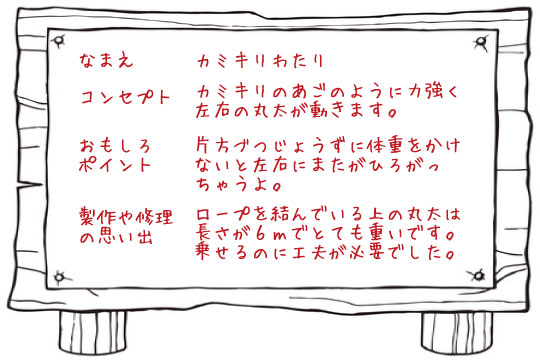 なまえ カミキリわたり
コンセプト カミキリのあごのように力強く
左右の丸太が動きます。
おもしろ 片方づつじょうずに体重をかけ
ポイント ないと左右にまたがひろがっ
ちゃうよ。
製作や修理 ロープを結んでいる上の丸太は
の思い出 長さが6mでとても重いです。
乗せるのに工夫が必要でした。